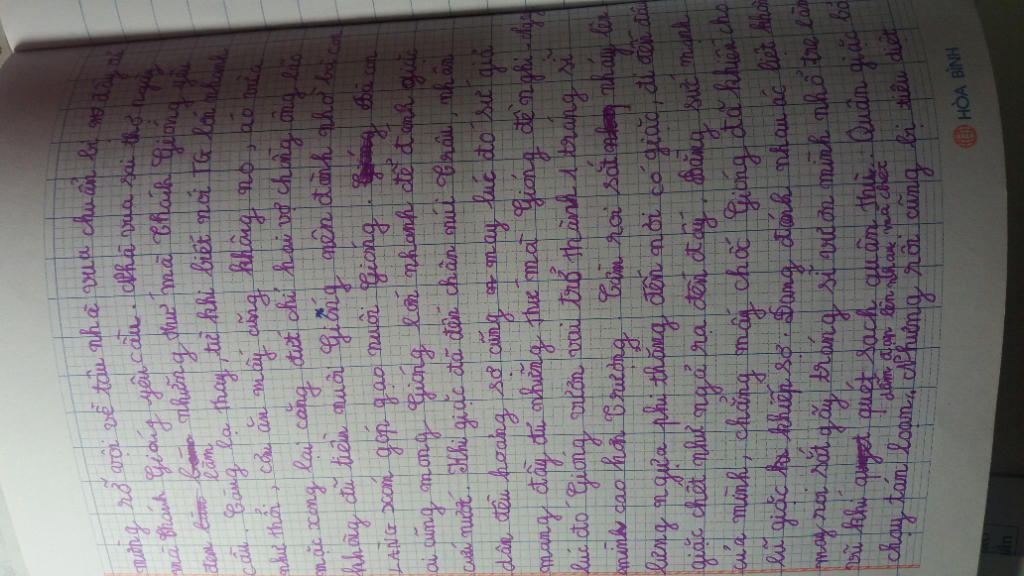 mừng rỡ vội về tâu nhà vua chuẩn bị mọi thứ
mà thánh Gióng yêu cầu. Nhà vua sai thợ ngày
đêm làm những thứ mà Thánh Gióng yêu
cầu. Càng lạ thay, từ khi biết nói TG lớn nhanh
như thổi, cơm ăn mấy cũng không no, áo vừa
mặc xong lại căng đứt chỉ hai vợ chồng ông lão
không đủ tiền nuôi Gióng nên đành nhờ bà con
LÀNG xóm góp gạo nuôi Gióng. Bà con
ai cũng mong Gióng lớn nhanh để đánh giặc
cứu nước. Khi giặc đã đến chân núi Trâu, nhân
dân đều hoảng sợ cũng may lúc đó sứ giả
mang đầy đủ những thứ mà Gióng đề nghị
lúc đó Gióng vươn vai trở thành 1 tráng sĩ
mình cao hơn trượng. Cầm roi sắt nhảy lên
lưng ngựa phi thẳng đến nơi có giặc, đi đến đâu
giặc chết như ngả rạ đến đấy. Bằng sức mạnh
của mình, chẳng mấy chốc Gióng đã khiến cho
lũ giặc khiếp sợ. Đang đánh nhau ác liệt thì
may roi sắt gãy tráng sĩ vươn mình nhổ tre
rồi khi quét sạch quân thù. Quân giặc bỏ
dẫm đạp lên nhau mà chết
chạy tán loạn, Nhưng rồi cũng bị tiêu diệt
HÒA BÌNH